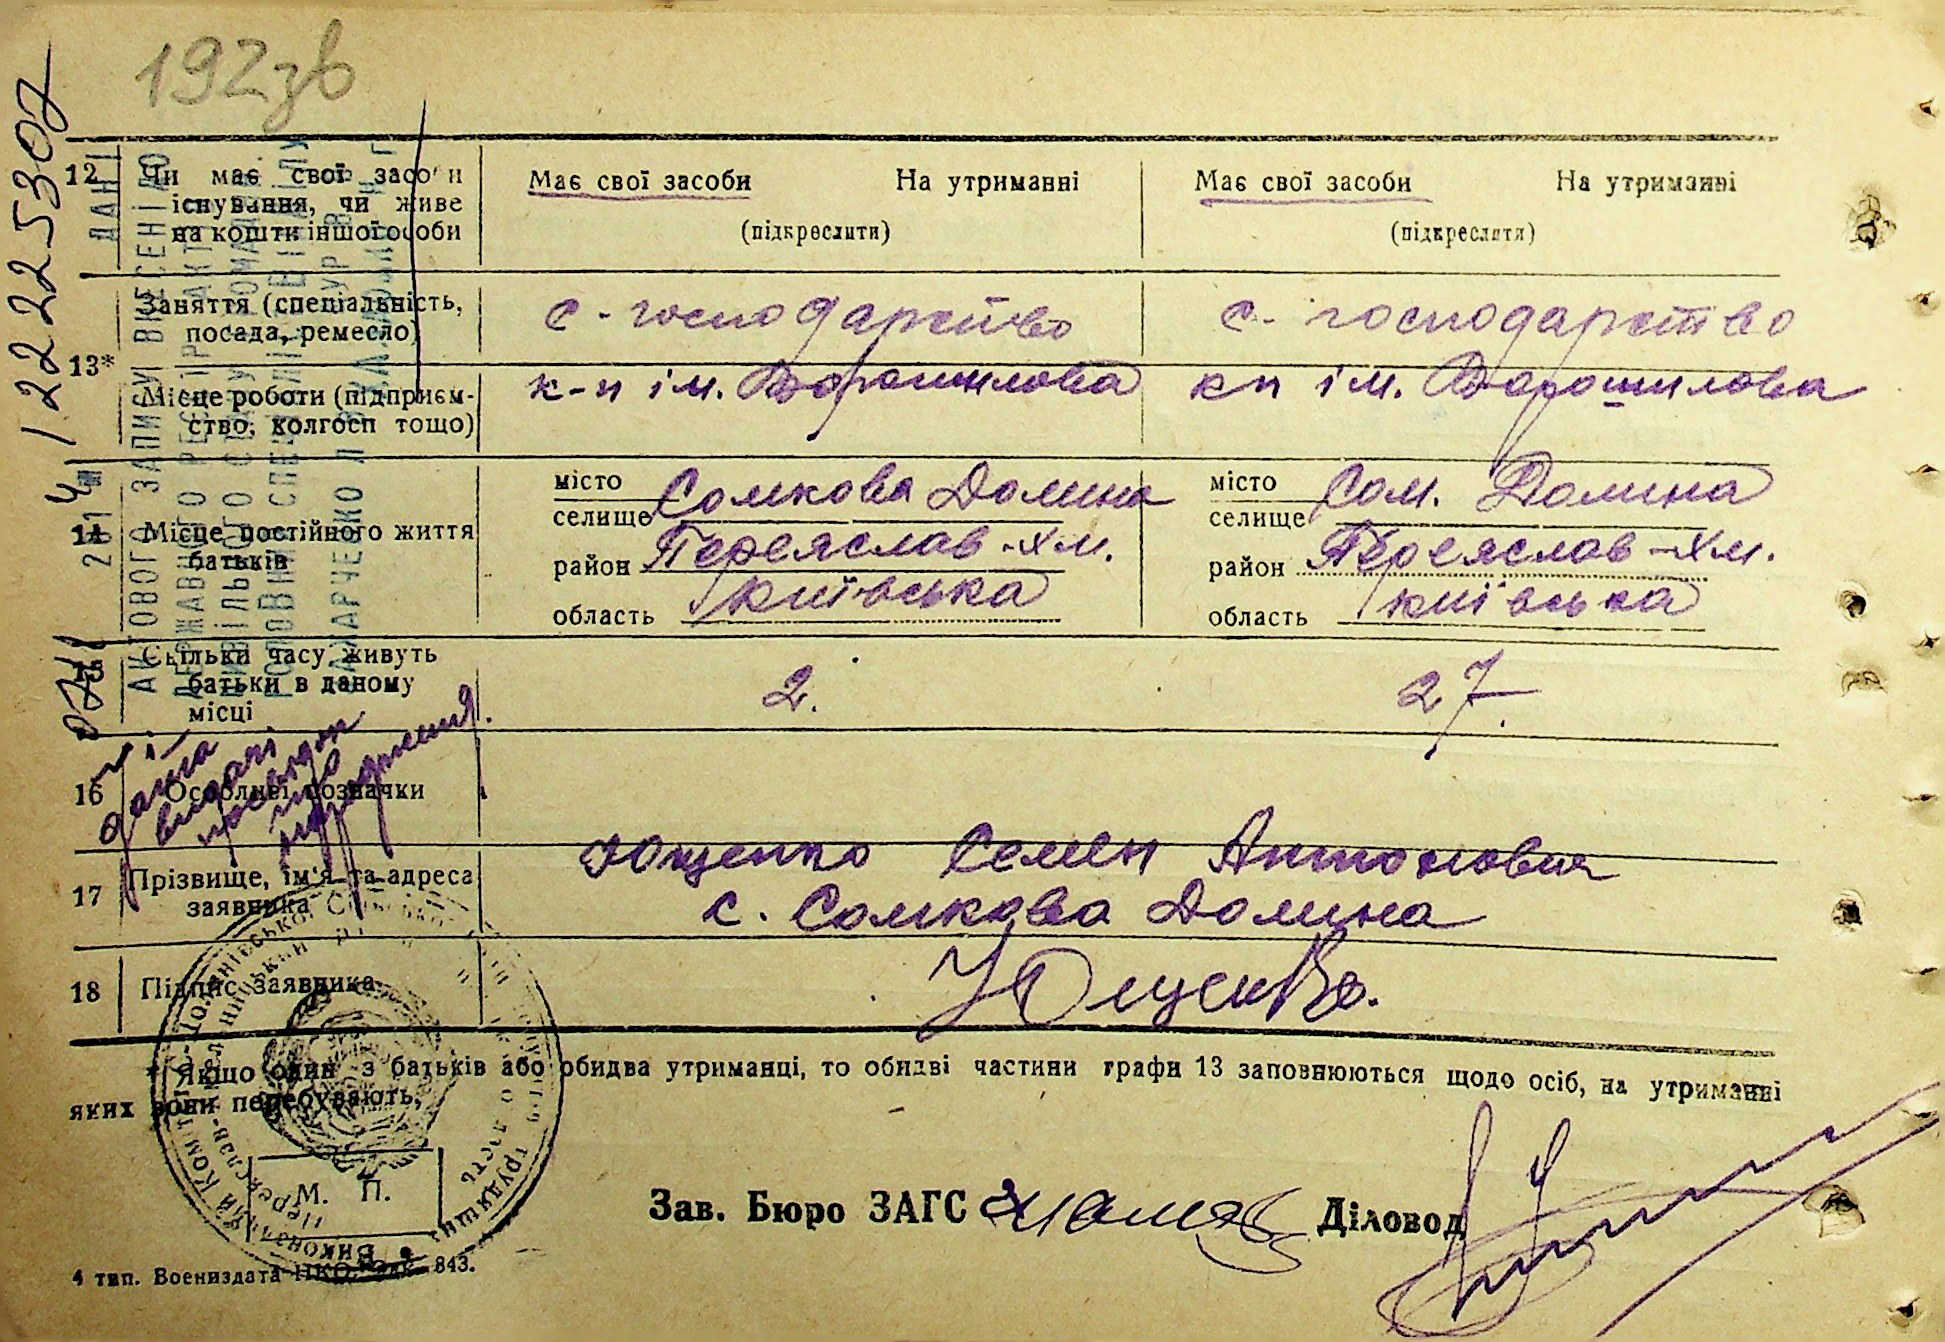 192зв
1222530
12 Чи має свої засоби існування, чи живе на кошти іншої особи
Має свої засоби На утриманні
(підкреслити)
Має свої засоби На утриманні
(підкреслити)
13*
Заняття (спеціальність, посада, ремесло)
с-господарство
с. господарство
Місце роботи (підприєм-
ство, колгосп тощо)
к-п ім. Ворошилова
кп ім. Ворошилова
14 Місце постійного життя батьків
місто
селище Сомкова Долина
район Переяслав-Хм.
область Київська
місто
селище Сом. Долина
район Переяслав-Хм.
область Київська
15 Скільки часу живуть батьки в даному місці
2.
27.
16 Особливі позначки
17 Прізвище, ім'я та адреса заявника
Ющенко Семен Антонович
с. Сомкова Долина
18 Підпис заявника
Ющенко.
* Якщо один з батьків або обидва утриманці, то обидві частини графи 13 заповнюються щодо осіб, на утриманні
яких вони перебувають.
М. П.
Зав. Бюро ЗАГС
Діловод
4 тип. Воениздата НКО. Зак. 843.
АКТОВОГО ЗАПИСУ ВНЕСЕНІ ДО